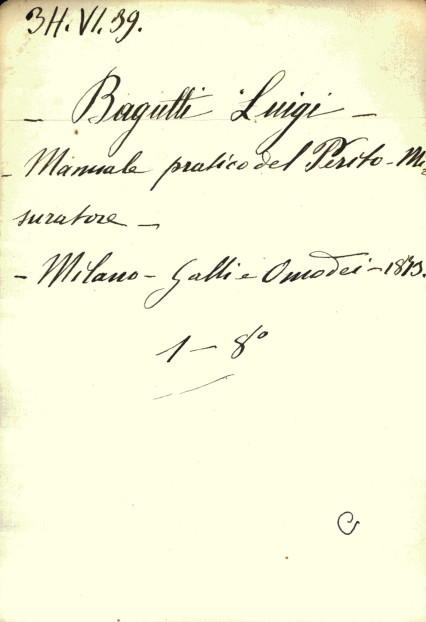 34.VI.39.
– Bagutti Luigi –
– Manuale pratico del Perito-Mi=
suratore –
– Milano – Galli e Omodei – 1873.
1 – 8°
C